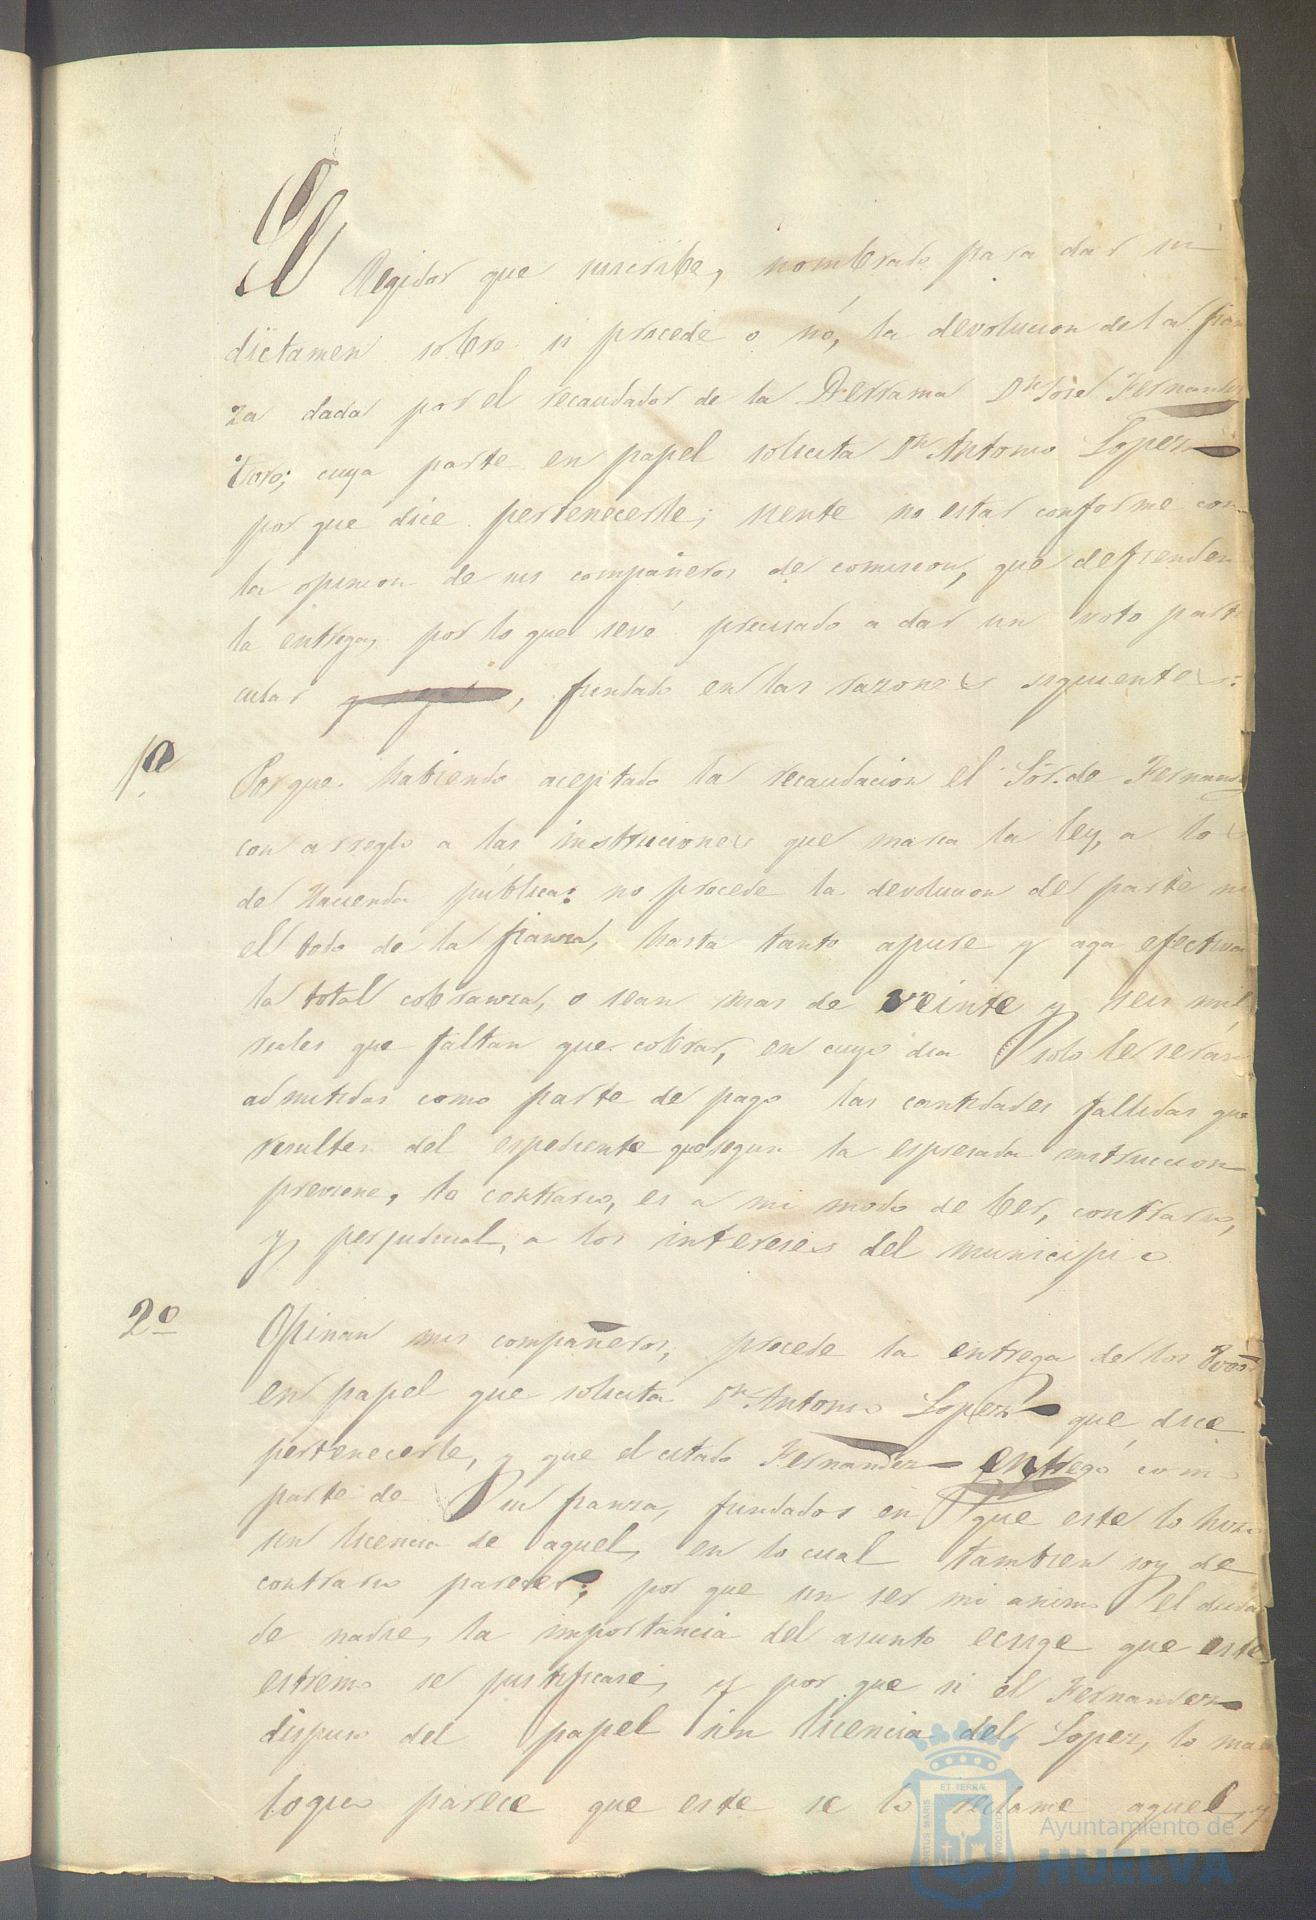 El Regidor que suscribe, nombrado para dar su
dictamen sobre si procede o nó, la devolucion de la fian
za dada por el recaudador de la Derrama Dn Jose Fernandez
Toro; cuya parte en papel solicita Dn Antonio Lopez
por que dice pertenecerle; siente no estar conforme con
la opinion de sus compañeros de comision, que defienden
la entrega, por lo que sevé precisado a dar un voto parti
cular , fundado en las razones siguientes:
1a Porque habiendo aceptado la recaudacion el Sor. de Fernandez
con arreglo a las instruciones que marca la ley, a los
de Hacienda pública: no procede la devolucion de parte ni
el todo de la fianza, hasta tanto apure y aga efectiva
la total cobranza, o sean mas de veinte y seis mil
reales que faltan que cobrar, en cuyo dia solo le serán
admitidas como parte de pago las cantidades fallidas que
resulten del espediente que segun la espresada instruccion
previene, lo contrario, es a mi modo de ber, contrario,
y perjudicial, a los intereses del municipio
2o Opinan mis compañeros, procede la entrega de los
en papel que solicita Dn Antonio Lopez que dice
pertenecerle, y que el citado Fernandez entregó como
parte de su fianza, fundados en que este lo hizo
sin licencia de aquel, en lo cual tambien soy de
contrario parecer; por que sin ser mi animo el dudar
de nadie, la importancia del asunto ecsige que este
estremo se justificase, y por que si el Fernandez
dispuso del papel sin licencia del Lopez, lo mas
logico parece que este se lo reclame aquel, y
ET TERRÆ
PORTUS MARIS
CUSTODIA
Ayuntamiento de
HUELVA